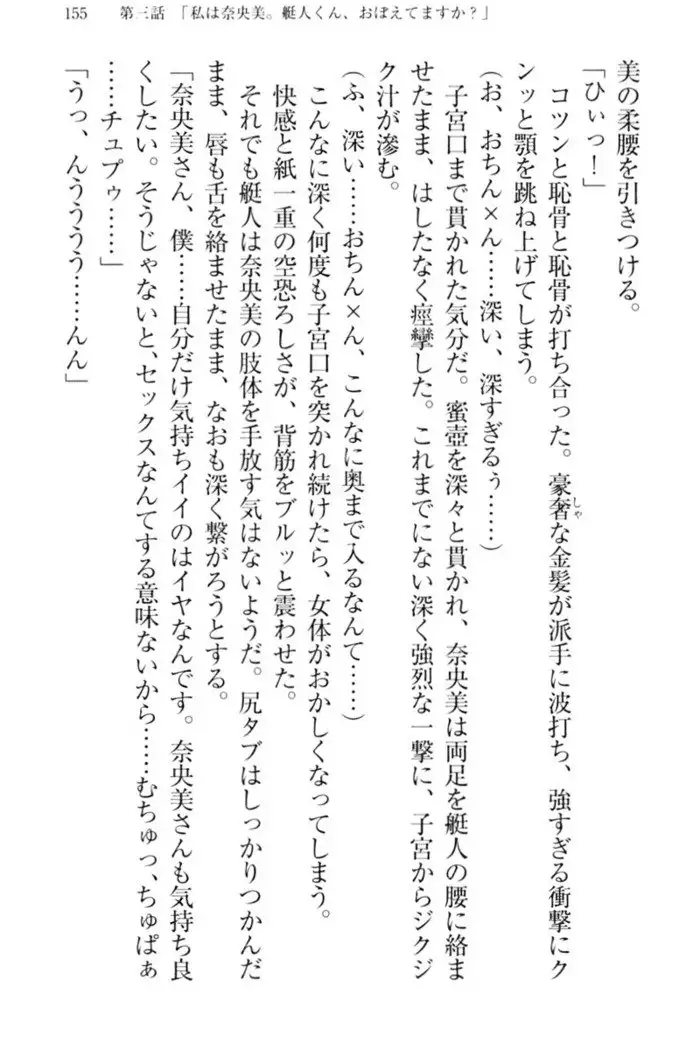 155　第三話　「私は奈央美。艇人くん、おぼえてますか？」
美の柔腰を引きつける。
「ひぃっ！」
コツンと恥骨と恥骨が打ち合った。豪奢な金髪が派手に波打ち、強すぎる衝撃にク
しゃ
ンッと顎を跳ね上げてしまう。
（お、おちん×ん……深い、深すぎるぅ……）
子宮口まで貫かれた気分だ。蜜壺を深々と貫かれ、奈央美は両足を艇人の腰に絡ま
せたまま、はしたなく痙攣した。これまでにない深く強烈な一撃に、子宮からジクジ
ク汁が滲む。
（ふ、深い……おちん×ん、こんなに奥まで入るなんて……）
こんなに深く何度も子宮口を突かれ続けたら、女体がおかしくなってしまう。
快感と紙一重の空恐ろしさが、背筋をブルッと震わせた。
それでも艇人は奈央美の肢体を手放す気はないようだ。尻タブはしっかりつかんだ
まま、唇も舌を絡ませたまま、なおも深く繋がろうとする。
「奈央美さん、僕……自分だけ気持ちイイのはイヤなんです。奈央美さんも気持ち良
くしたい。そうじゃないと、セックスなんてする意味ないから……むちゅっ、ちゅぱぁ
……チュプゥ……」
「うっ、んうううう……んん」